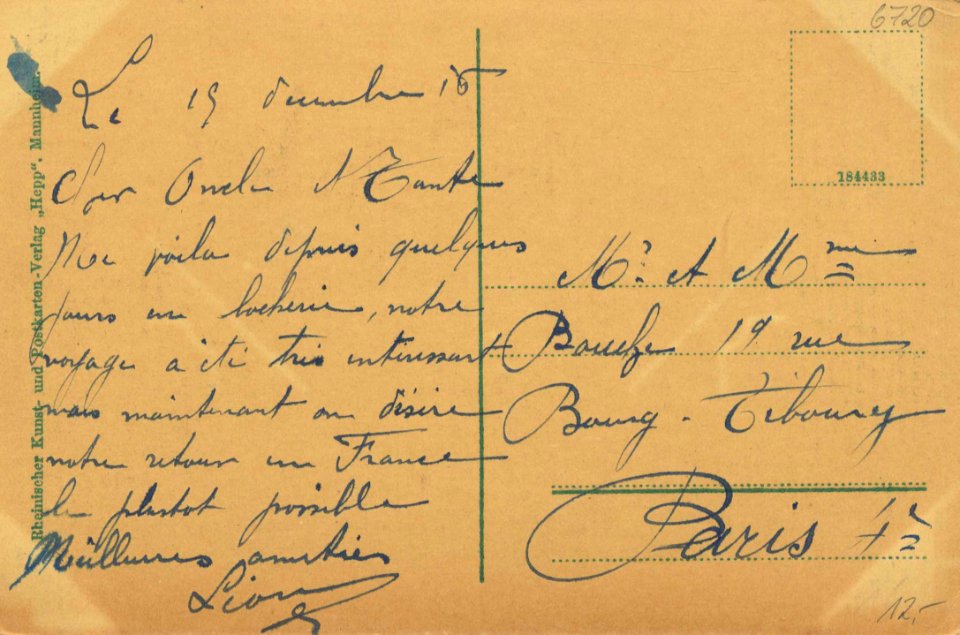 6720
184433
Rheinischer Kunst- und Postkarten-Verlag „Hepp“, Mannheim.
Le 15 decembre 18
Cher Oncle et Tante
Me voila depuis quelques
jours en bocherie, notre
voyage a été très intéressant
mais maintenant on désire
notre retour en France
le plustot possible
Meilleures amitiés
Léon
Mr. et Mme
19 rue
Bourg-Tibourg
Paris 4e
12,-